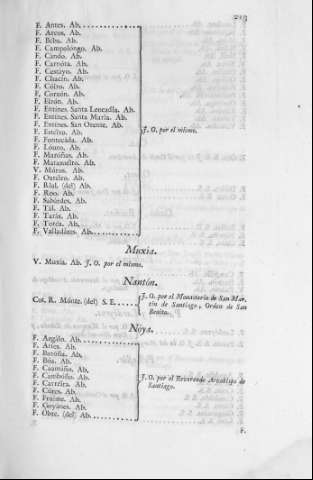 213
F. Antes. Ab.
F. Arcos. Ab.
F. Beba. Ab.
F. Campolóngo. Ab.
F. Cando. Ab.
F. Carnóta. Ab.
F. Castayo. Ab.
F. Chacín. Ab.
F. Cólto. Ab.
F. Corzón. Ab.
F. Eirón. Ab.
F. Entines. Santa Leocadia. Ab.
F. Entines. Santa María. Ab.
F. Entines. San Orente. Ab.
F. Esteiro. Ab.
F. Fontecáda. Ab.
F. Louro, Ab.
F. Maróñas. Ab.
F. Mataseíro. Ab.
V. Múros. Ab.
F. Outeiro. Ab.
F. Rial. (del) Ab.
F. Roo. Ab.
F. Sabárdes. Ab.
F. Tal. Ab.
F. Tarás. Ab.
F. Toréa. Ab.
F. Valladáres. Ab.
J. O. por el mismo.
Muxia.
V. Muxía. Ab. J. O. por el mismo.
Nantón.
Cot. R. Mónte. (del) S. E.
J. O. por el Monasterio de San Martín de Santiago, Orden de San Benito.
Nóya.
F. Argalo. Ab.
F. Artes. Ab.
F. Baroña. Ab.
F. Bóa. Ab.
F. Caamaño. Ab.
F. Camboño. Ab.
F. Carréira. Ab.
F. Cúres. Ab.
F. Fruíme. Ab.
F. Goyánes. Ab.
F. Obre. (del) Ab.
J. O. por el Reverendo Arzobispo de Santiago.
F.